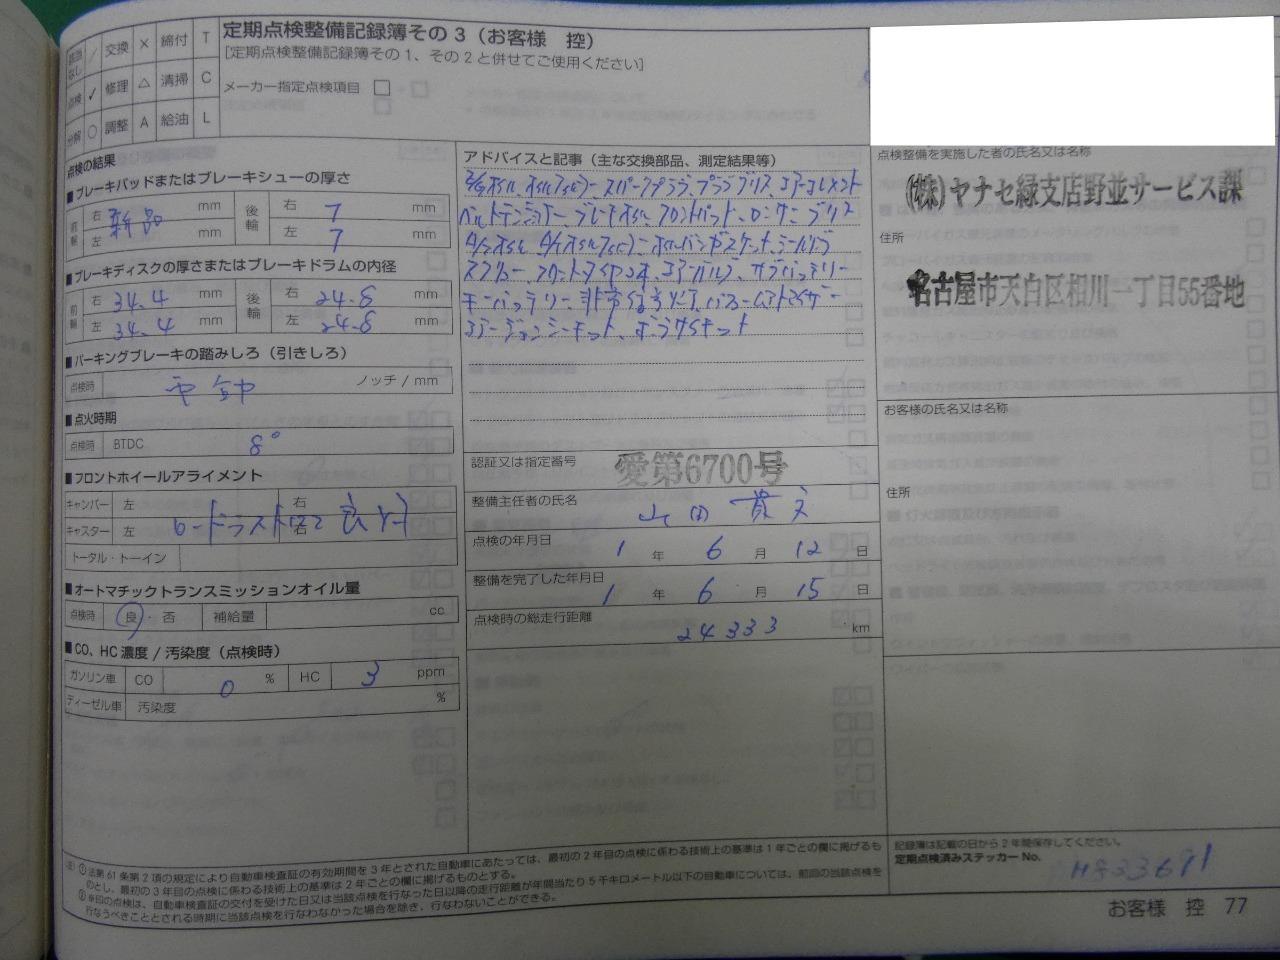 該当なし / 交換 × 締付 T
点検 ✓ 修理 △ 清掃 C
分解 ○ 調整 A 給油 L
定期点検整備記録簿その3（お客様 控）
[定期点検整備記録簿その1、その2と併せてご使用ください]
メーカー指定点検項目 □
点検の結果
■ブレーキパッドまたはブレーキシューの厚さ
前輪 右 新品 mm 後輪 右 7 mm
左 mm 左 7 mm
■ブレーキディスクの厚さまたはブレーキドラムの内径
前輪 右 34.4 mm 後輪 右 24.8 mm
左 34.4 mm 左 24.8 mm
■パーキングブレーキの踏みしろ（引きしろ）
点検時 ノッチ / mm
■点火時期
点検時 BTDC 8°
■フロントホイールアライメント
キャンバー 左 右
キャスター 左 右
ロードテストにて良好
トータル・トーイン
■オートマチックトランスミッションオイル量
点検時 良・否 補給量 cc
■CO、HC濃度 / 汚染度（点検時）
ガソリン車 CO 0 % HC 3 ppm
ディーゼル車 汚染度 %
アドバイスと記事（主な交換部品、測定結果等）
スパークプラグ、プラググリス、エアーエレメント
ベルトテンショナー、ブレーキオイル、フロントパット、センサー、グリス
A/Tオイル、オイルパンガスケット、シールリング
エアーバルブ、サブバッテリー
キーバッテリー、非常信号灯、パフュームアトマイザー
認証又は指定番号 愛第6700号
整備主任者の氏名 山田
点検の年月日 1 年 6 月 12 日
整備を完了した年月日 1 年 6 月 15 日
点検時の総走行距離 24333 km
点検整備を実施した者の氏名又は名称
(株)ヤナセ緑支店野並サービス課
住所
名古屋市天白区相川一丁目55番地
お客様の氏名又は名称
住所
記録簿は記載の日から2年間保存してください。
定期点検済みステッカー No.
(注) ①法第61条第2項の規定により自動車検査証の有効期間を3年とされた自動車にあたっては、最初の2年目の点検に係わる技術上の基準は1年ごとの欄に掲げるも
のとし、最初の3年目の点検に係わる技術上の基準は2年ごとの欄に掲げるものとする。
②※印の点検は、自動車検査証の交付を受けた日又は当該点検を行なった日以降の走行距離が年間当たり5千キロメートル以下の自動車については、前回の当該点検を
行なうべきこととされる時期に当該点検を行なわなかった場合を除き、行なわないことができる。
お客様 控 77